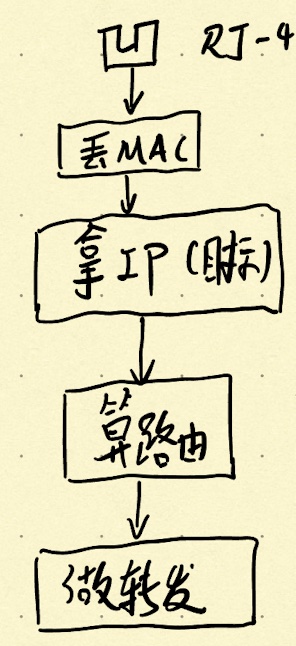 RJ-4
丢MAC
拿IP(目标)
算路由
做转发